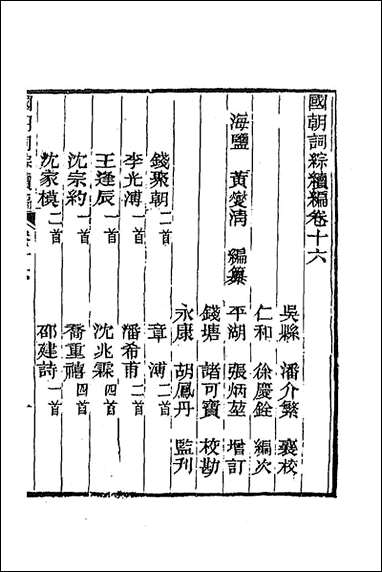 國朝詞綜續編卷十六
吳縣 潘介繁 襄校
仁和 徐慶銓 編次
海鹽 黃燮清 編纂 平湖 張炳堃 增訂
錢塘 諸可寶 校勘
永康 胡鳳丹 監刋
錢聚朝二首 章溥二首
李光溥一首 潘希甫二首
王逢辰一首 沈兆霖四首
沈宗約一首 喬重禧四首
沈家模二首 邵建詩一首
國朝詞綜續編 卷十六 一